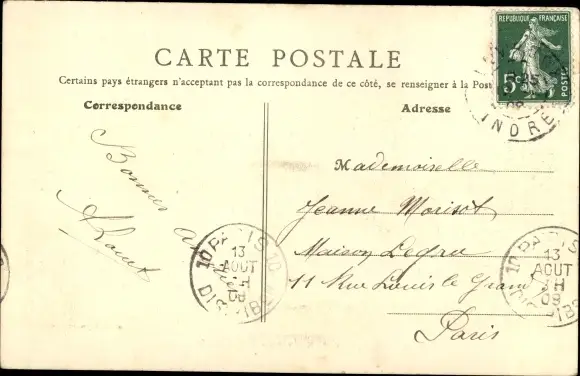 RÉPUBLIQUE FRANÇAISE
5c
POSTES
25
08
INDRE
CARTE POSTALE
Certains pays étrangers n'acceptant pas la correspondance de ce côté, se renseigner à la Post
Correspondance
Adresse
Bonnes
Mademoiselle
Jeanne Morisot
Maison Legru
11 Rue Louis le Grand
Paris
10 PARIS 10
13
AOUT
08
DISTRIB
10 PARIS
13
AOUT
3H
08
DISTRIB